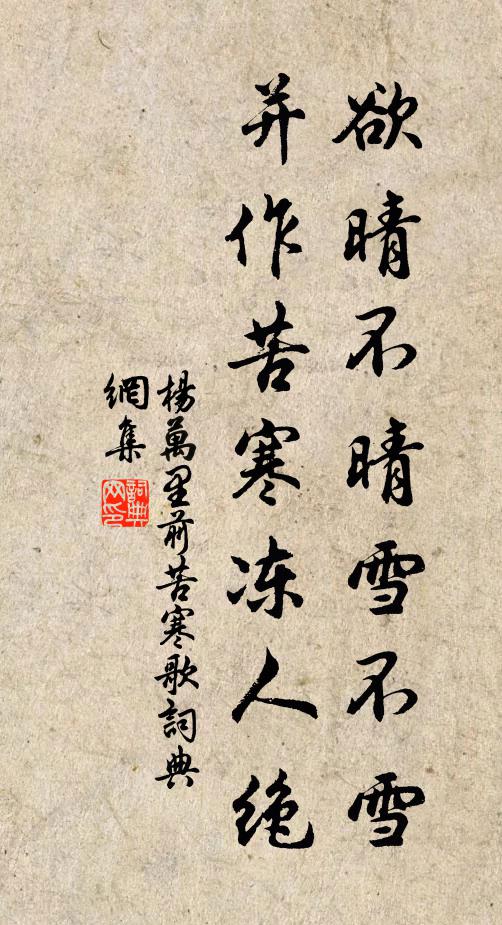 欲晴不晴雪不雪
并作苦寒冻人绝
楊萬里前苦寒歌詞典
網集
詞典
网印